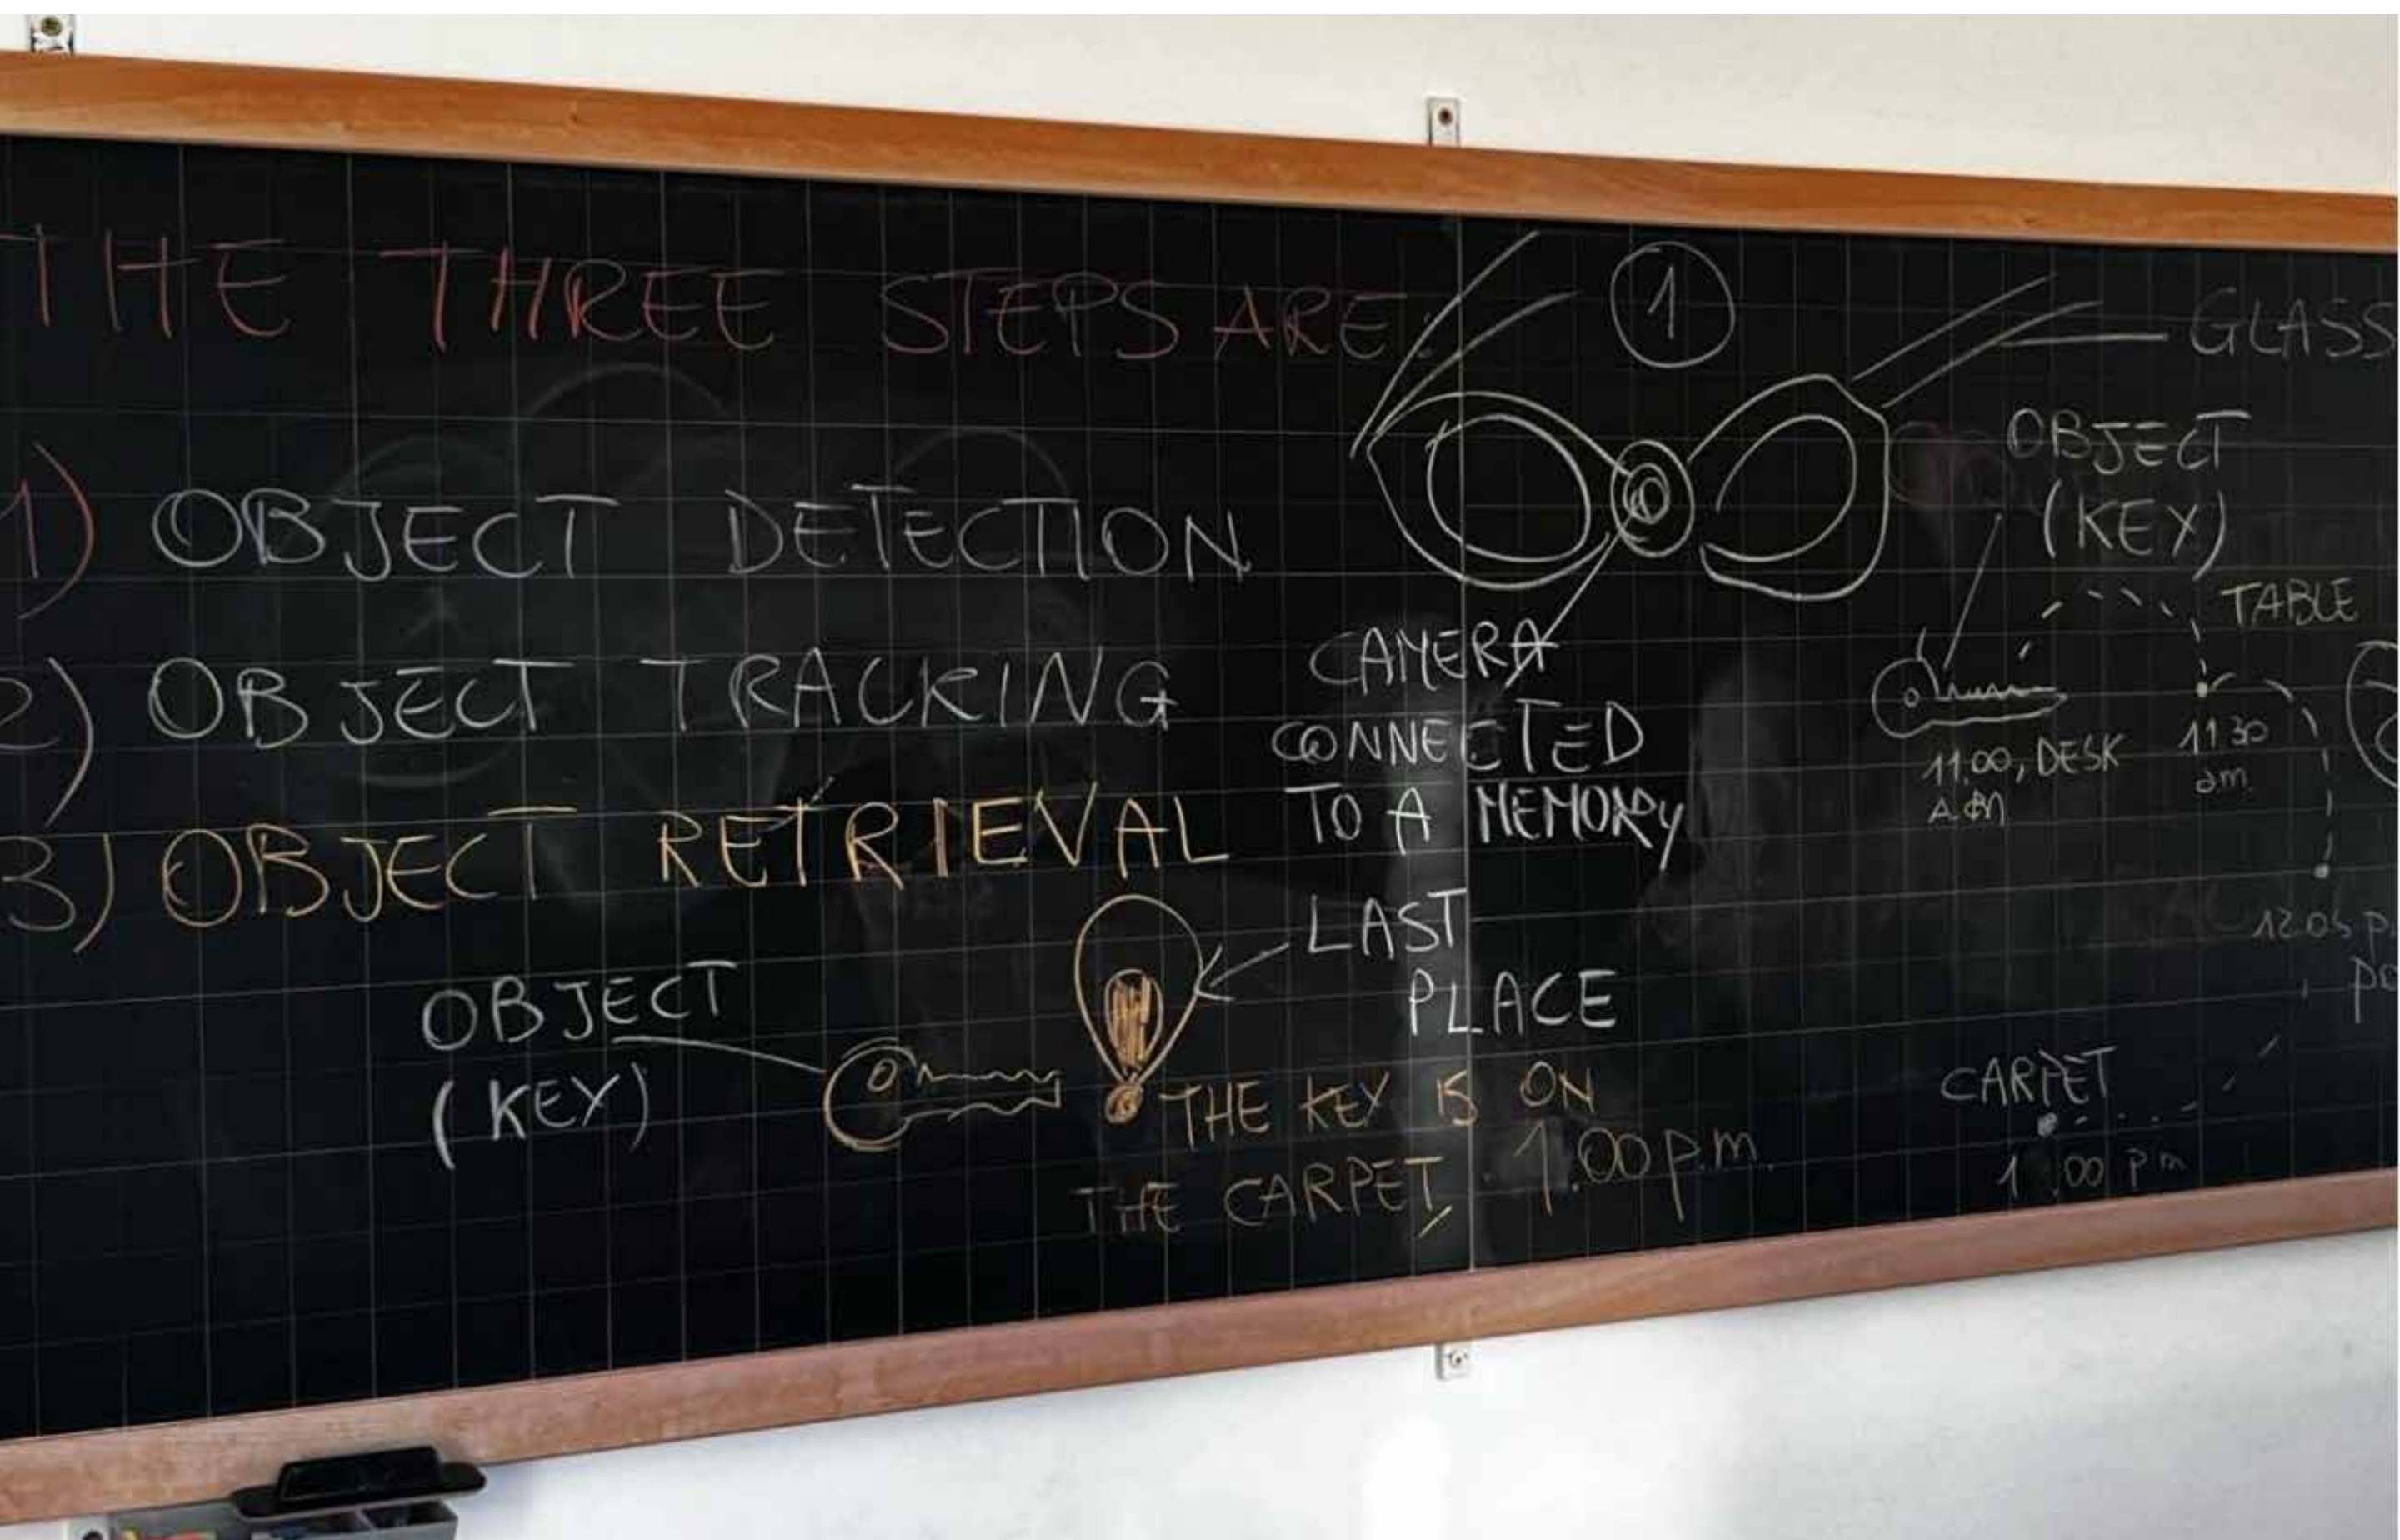 THE THREE STEPS ARE:
1) OBJECT DETECTION
2) OBJECT TRACKING
3) OBJECT RETRIEVAL
OBJECT
(KEY)
LAST
PLACE
THE KEY IS ON
THE CARPET, 1.00 p.m.
1
GLASS
CAMERA
CONNECTED
TO A MEMORY
OBJECT
(KEY)
TABLE
11.00, DESK
A.M
11 30
am
CARPET
1.00 pm